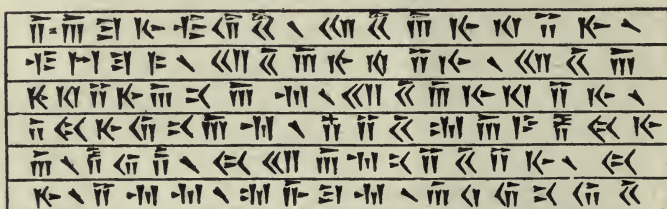 𐎭𐎠𐎼𐎹𐎺𐎢𐏁 𐏐 𐎧𐏁𐎠𐎹𐎰𐎡𐎹 𐏐
𐎺𐏀𐎼𐎣 𐏐 𐎧𐏁𐎠𐎹𐎰𐎡𐎹 𐏐 𐎧𐏁𐎠
𐎹𐎰𐎡𐎹𐎢𐎴𐎠𐎶 𐏐 𐎧𐏁𐎠𐎹𐎰𐎡𐎹 𐏐
𐎭𐏃𐎹𐎢𐎴𐎠𐎶 𐏐 𐎻𐎡𐏁𐎫𐎠𐎿𐎱𐏃𐎹
𐎠 𐏐 𐎱𐎢𐏂 𐏐 𐏃𐎧𐎠𐎶𐎴𐎡𐏁𐎡𐎹 𐏐 𐏃
𐎹 𐏐 𐎡𐎶𐎶 𐏐 𐎫𐎨𐎼𐎶 𐏐 𐎠𐎤𐎢𐎴𐎢𐏁